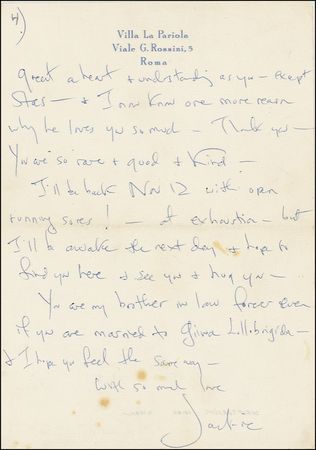 4)
Villa La Pariola
Viale G. Rossini, 5
Roma
great a heart & understanding as you — except
Stas — & I now know one more reason
why he loves you so much — Thank you —
You are so rare & good & kind —
I'll be back Nov 12 with open
running sores! — of exhaustion — but
I'll be awake the next day & hope to
find you here & see you & hug you —
You are my brother in law forever even
if you are married to Gilma Lillibrigida —
& I hope you feel the same way —
With so much love
Jackie